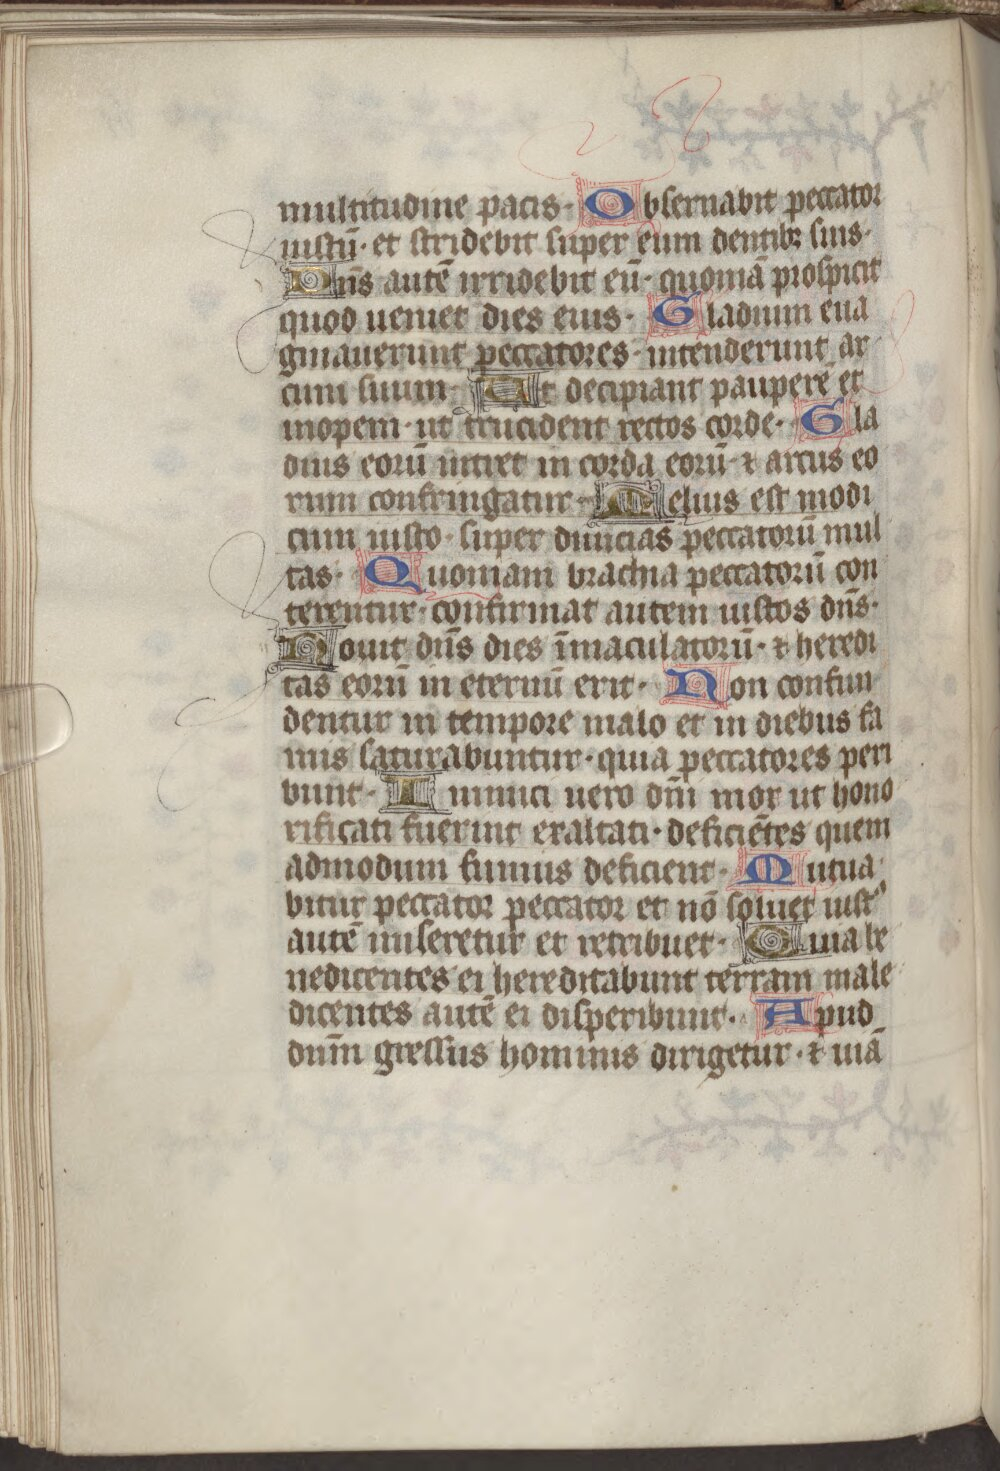 multitudine pacis· Obseruabit peccator
iustū· et stridebit super eum dentibꝫ suis·
Dn̄s autē irridebit eū· quoniā prospicit
quod ueniet dies eius· Gladium eua
ginauerunt peccatores· intenderunt ar
cum suum· Ut decipiant pauperē et
inopem· ut trucident rectos corde· Gla
dius eorū intret in corda eorū· ⁊ arcus eo
rum confringatur· Melius est modi
cum iusto· super diuicias peccatorū mul
tas· Quoniam brachia peccatorū con
terentur· confirmat autem iustos dn̄s·
Nouit dn̄s dies īmaculatorū· ⁊ heredi
tas eorū in eternū erit· Non confun
dentur in tempore malo et in diebus fa
mis saturabuntur· quia peccatores peri
bunt· Inimici uero dn̄i mox ut hono
rificati fuerint exaltati· deficiētes quem
admodum fumus deficient· Mutua
bitur peccator peccator et nō soluet iustꝰ
autē miseretur et retribuet· Quia be
nedicentes ei hereditabunt terram male
dicentes autē ei disperibunt· Apud
dnm̄ gressus hominis dirigetur· ⁊ uiā